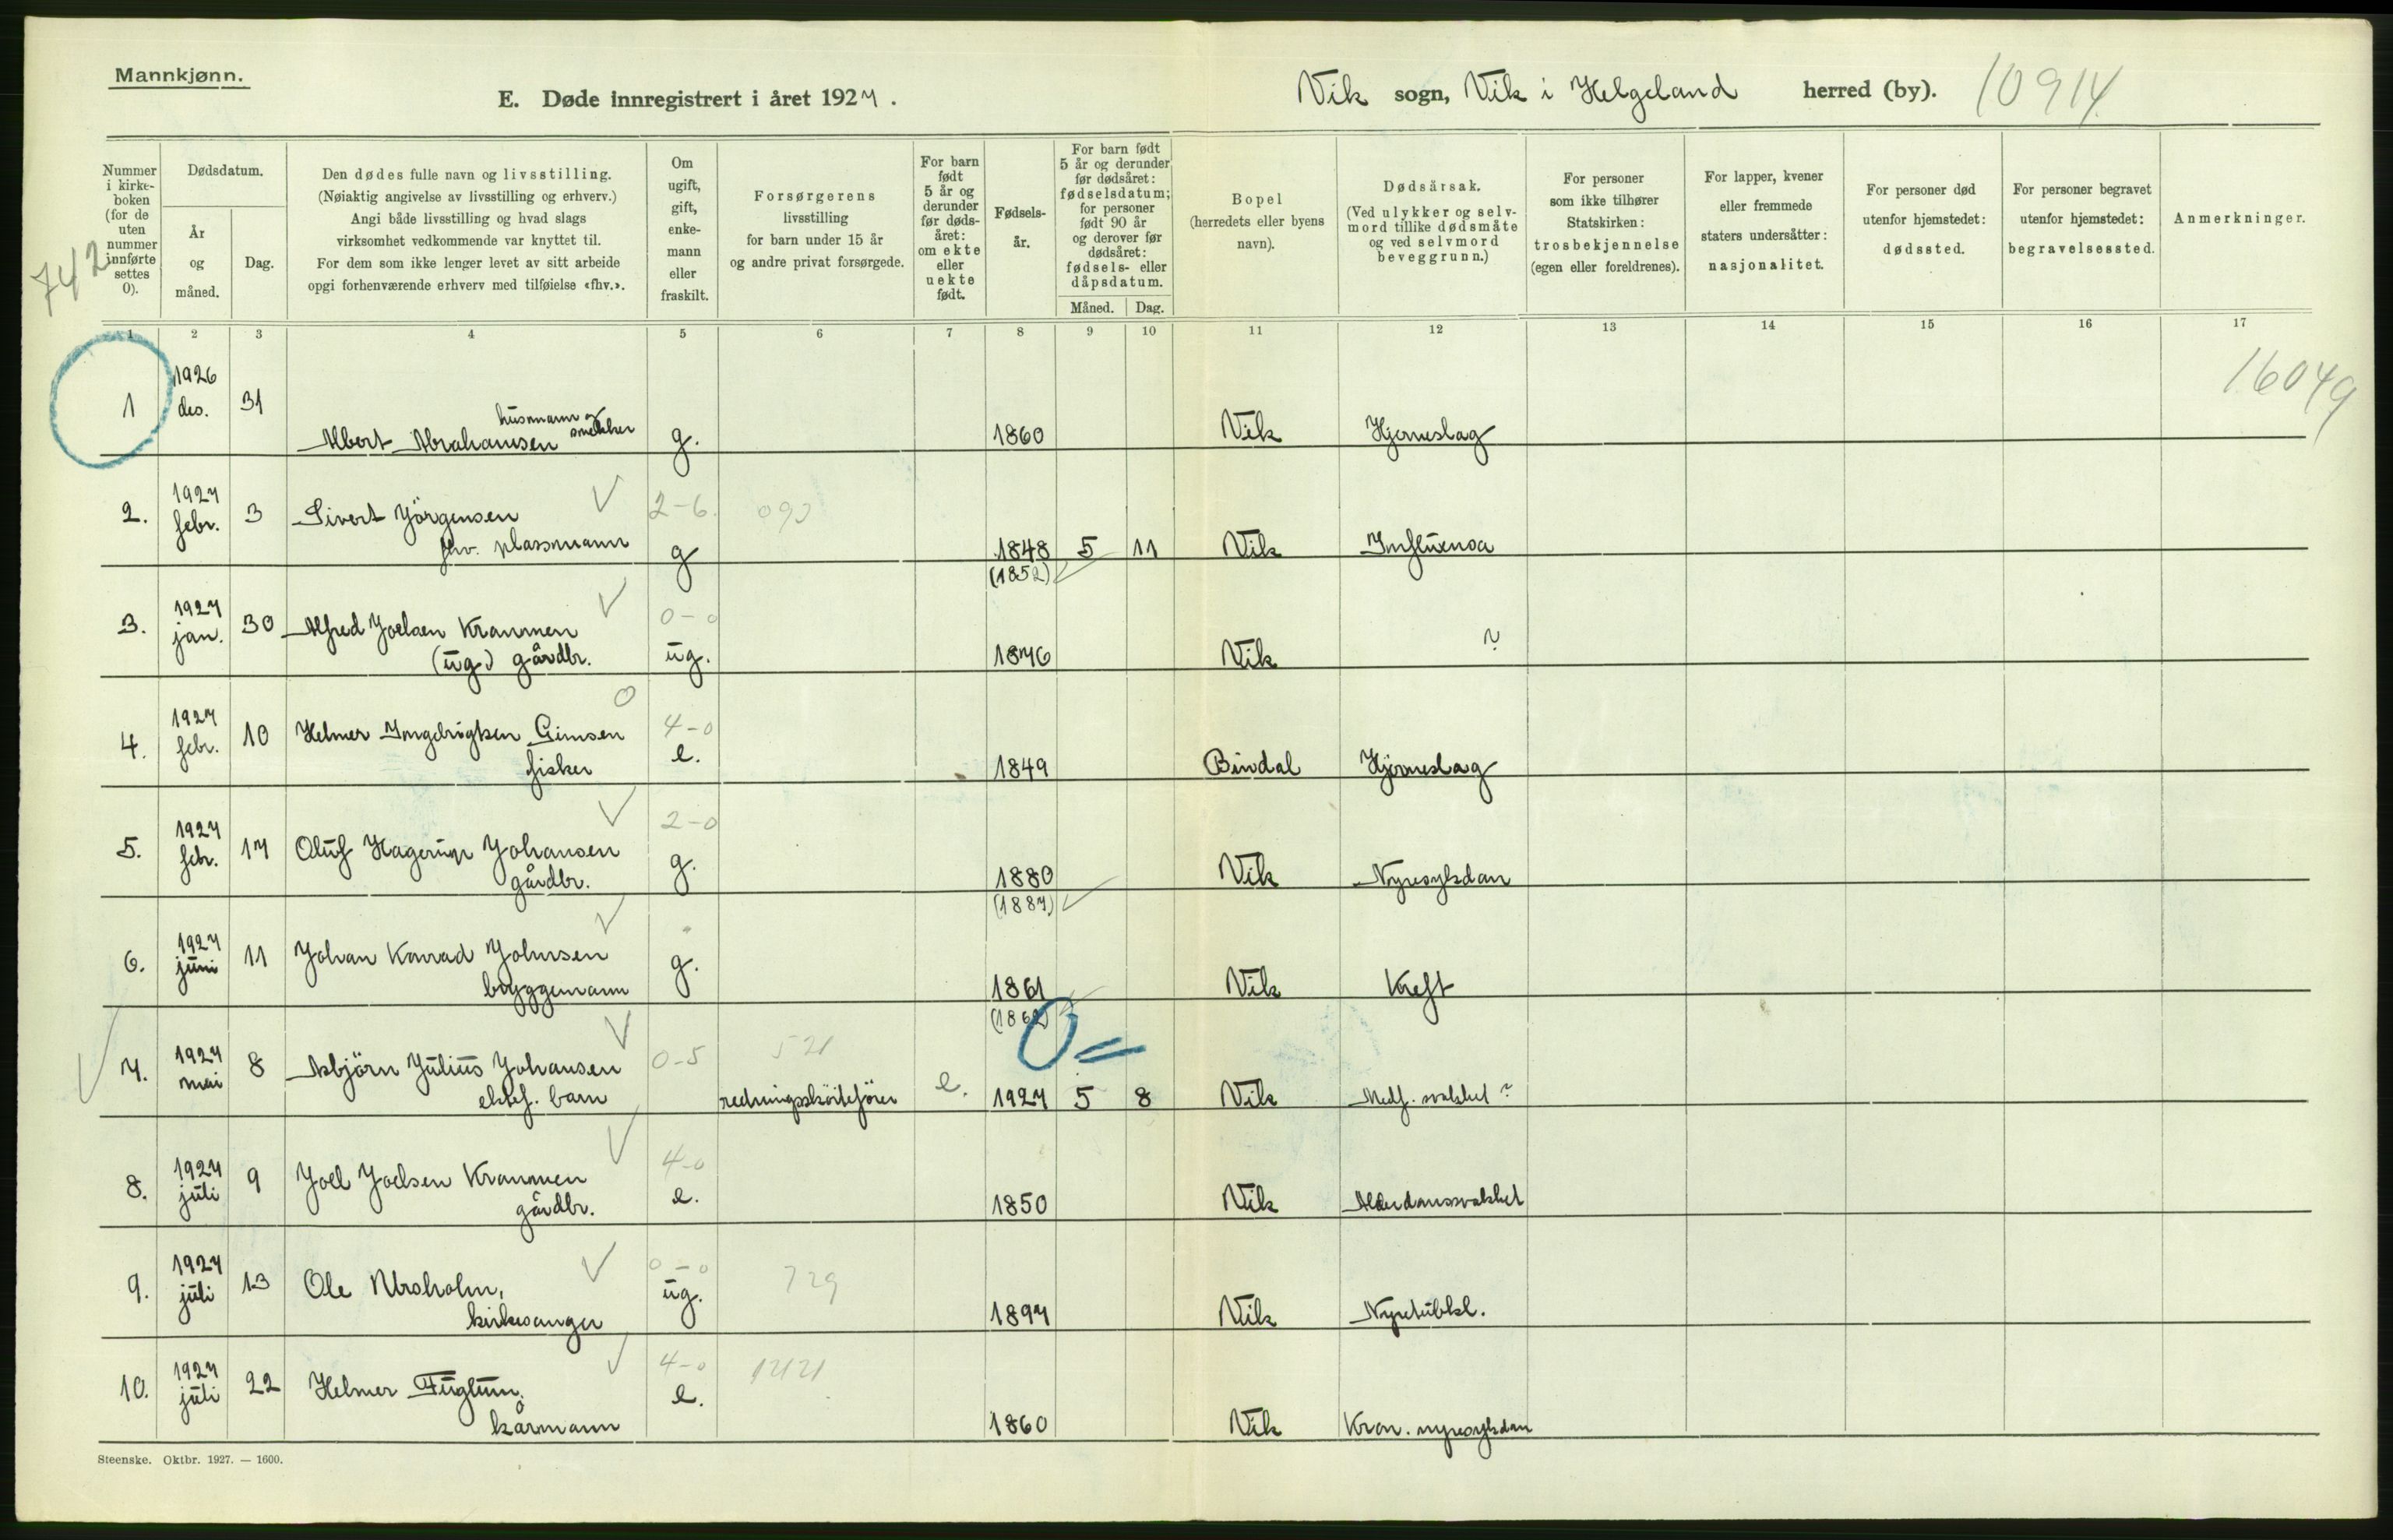 Mannkjønn.
E. Døde innregistrert i året 1927.
Vik sogn, Vik i Helgeland herred (by). 10914
742
Nummer i kirkeboken (for de uten nummer innførte settes 0).
Dødsdatum.
År og måned.
Dag.
Den dødes fulle navn og livsstilling.
(Nøiaktig angivelse av livsstilling og erhverv.)
Angi både livsstilling og hvad slags
virksomhet vedkommende var knyttet til.
For dem som ikke lenger levet av sitt arbeide
opgi forhenværende erhverv med tilføielse «fhv.».
Om ugift, gift, enkemann eller fraskilt.
Forsørgerens
livsstilling
for barn under 15 år
og andre privat forsørgede.
For barn født 5 år og derunder før dødsåret: om ekte eller uekte født.
Fødselsår.
For barn født 5 år og derunder før dødsåret: fødselsdatum; for personer født 90 år og derover før dødsåret: fødsels- eller dåpsdatum.
Måned. Dag.
Bopel
(herredets eller byens
navn).
Dødsårsak.
(Ved ulykker og selv-
mord tillike dødsmåte
og ved selvmord
beveggrunn.)
For personer
som ikke tilhører
Statskirken:
trosbekjennelse
(egen eller foreldrenes).
For lapper, kvener
eller fremmede
staters undersåtter:
nasjonalitet.
For personer død
utenfor hjemstedet:
dødssted.
For personer begravet
utenfor hjemstedet:
begravelsessted.
Anmerkninger.
1 2 3 4 5 6 7 8 9 10 11 12 13 14 15 16 17
16049
1 1926 des. 31 Albert Abrahamsen husmann og snekker g. 1860 Vik Hjerneslag
2. 1927 febr. 3 Sivert Jörgensen 2-6. 093
fhv. plassmann g 1848 5 11 Vik Influensa
(1852)
3. 1927 jan. 30 Alfred Joelsen Kranmen 0-0
(ug.) gårdbr. ug. 1876 Vik ?
4. 1927 febr. 10 Helmer Ingebrigtsen Gimsen 4-0
fisker e. 1849 Bindal Hjerneslag
5. 1927 febr. 17 Oluf Hagerup Johansen 2-0
gårdbr. g. 1880 Vik Nyresykdan
(1887)
6. 1927 juni 11 Johan Konrad Johnsen
byggemann g. 1861 Vik Kreft
(1862)
7. 1927 mai 8 Asbjörn Julius Johansen 0-5 521
ektef. barn redningssköitefören e. 1927 5 8 Vik Medf. svakhet ?
8. 1927 juli 9 Joel Joelsen Kranmen 4-0
gårdbr. e. 1850 Vik Alderdomssvakhet
9. 1927 juli 13 Ole Ursholm, 0-0 729
kirkesanger ug. 1897 Vik Nyretubkl.
10. 1927 juli 22 Helmer Fuglum, 4-0 1421
kårmann e. 1860 Vik Kron. nyresykdan
Steenske. Oktbr. 1927. — 1600.